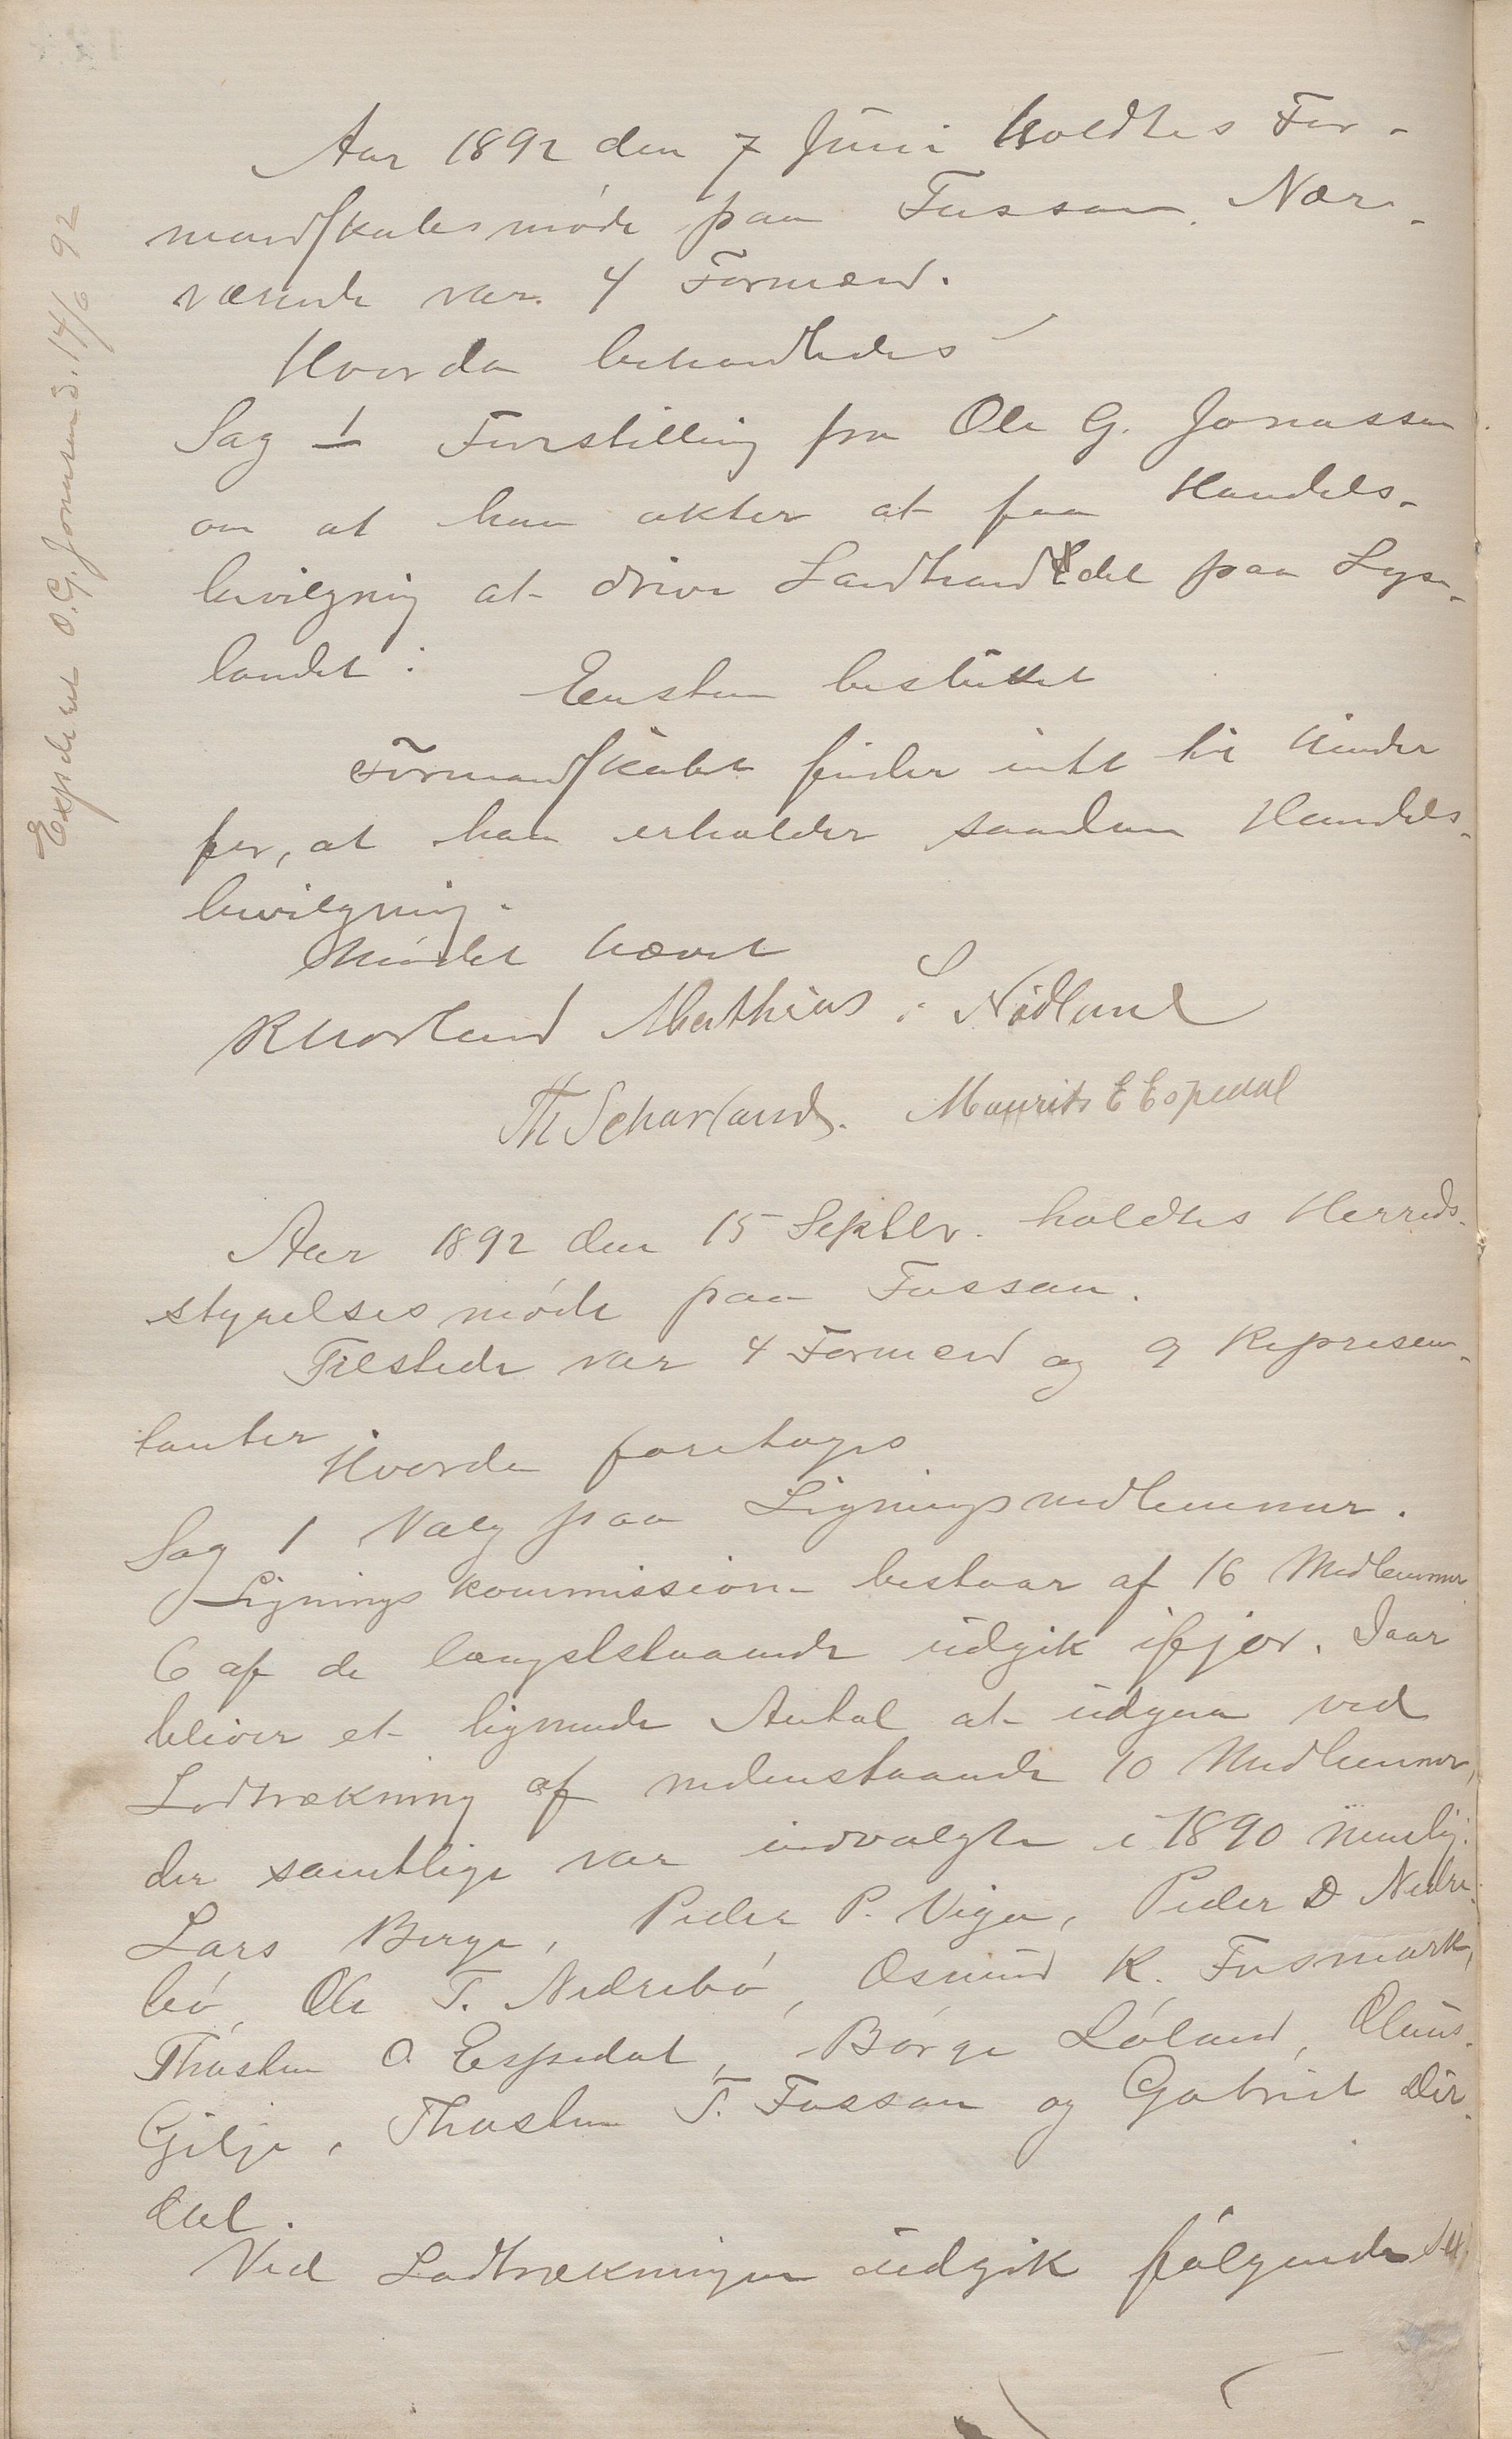 Aar 1892 den 7 Juni holdtes For-
mandskabsmøde paa Fossan. Nær-
værende var 4 Formænd.
Hvorda behandledes
Sag 1 Forestilling fra Ole G. Jonassen
om at han akter at faa Handels-
bevilgning at drive Landhandel paa Lyse-
landet:
Enstem besluttet
Formandskabet finder intet til Hinder
for, at han erholder saadan Handels-
bevilgning.
Mødet hævet
Mathias S Nødland
Th Scharland. Maurits E Espedal
Aar 1892 den 15 Septbr. holdtes Herreds-
styrelsesmøde paa Fossan.
Tilstede var 4 Formænd og 9 Represen-
tanter.
Hvorda foretoges
Sag 1 Valg paa Ligningsmedlemmer.
Ligningskommission bestaar af 16 Medlemmer
6 af de længststaaende udgik ifjor. Iaar
bliver et lignende Antal at udgaa ved
Lodtrækning af nedenstaaende 10 Medlemmer,
der samtlige var indvalgte i 1890 nemlig:
Lars Berge, Peder P. Viga, Peder D Nedre-
bø, Ole T. Nedrebø, Osmund K. Fosmark,
Thosten O. Espedal, Børge Løland, Olaus
Gilje, Thosten T. Fossan og Gabriel Dir-
dal.
Ved Lodtrækningen udgik følgende
Expederet O.G. Jonassen d. 14/6 92